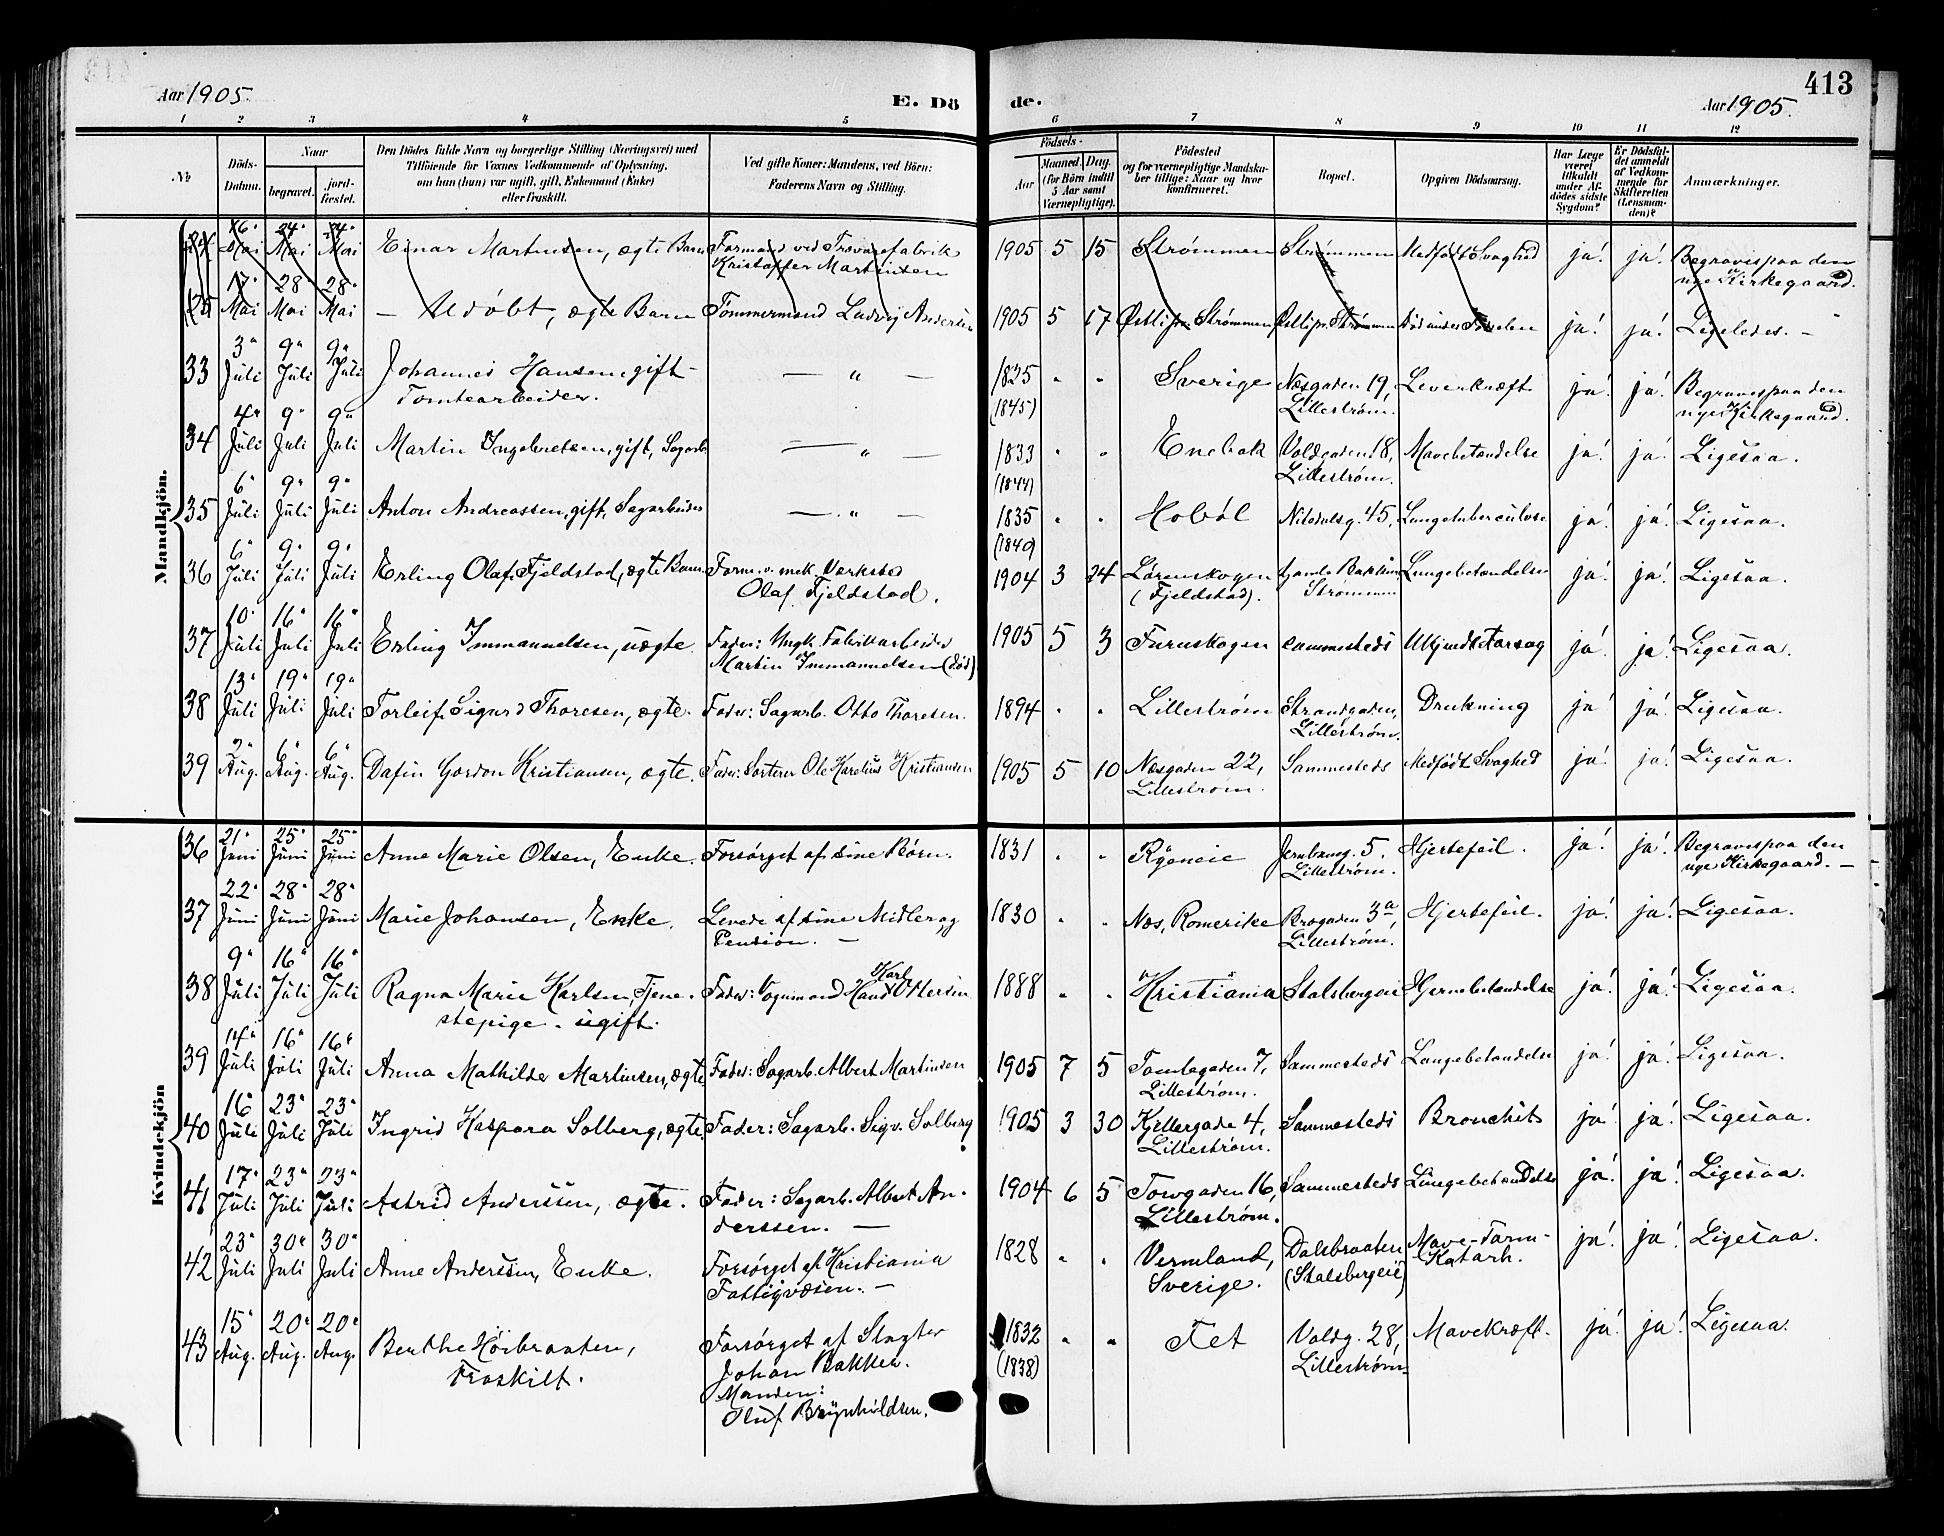 Aar 1905. E. Dö de. Aar 1905. 413
1 2 3 4 5 6 7 8 9 10 11 12
№ Döds-Datum. Naar begravet. jord-fæstet. Den Dödes fulde Navn og borgerlige Stilling (Næringsvei) med Tilföiende for Voxnes Vedkommende af Oplysning, om han (hun) var ugift, gift, Enkemand (Enke) eller fraskilt. Ved gifte Koner: Mandens, ved Börn: Faderens Navn og Stilling. Födsels- Aar Maaned. Dag. (for Börn indtil 5 Aar samt Værnepligtige). Födested og for værnepligtige Mandskaber tillige: Naar og hvor konfirmeret. Bopæl. Opgiven Dödsaarsag. Har Læge været tilkaldt under Afdödes sidste Sygdom? Er Dödsfaldet anmeldt af Vedkommende for Skifteretten (Lensmanden)? Anmærkninger.
Mandkjön.
24 16" Mai 24" Mai 24" Mai Einar Martinsen, ægte Barn Formand ved Trævarefabrik Kristoffer Martinsen 1905 5 15 Strømmen Strømmen Medfødt Svaghed ja! ja! Begravis paa den nye Kirkegaard.
25 17" Mai 28" Mai 28" Mai — Udøbt, ægte Barn Tømmermand Ludvig Andersen 1905 5 17 Østli pr. Strømmen Østli pr. Strømmen Død under Fødselen ja! ja! Ligeledes. —
33 3" Juli 9" Juli 9" Juli Johannes Hansen, gift - Tomtearbeider. — " — 1835 (1845) " " Sverige Næsgaden 19, Lillestrøm. Leverkræft ja! ja! Begravis paa den nye Kirkegaard.
34 4" Juli 9" Juli 9" Juli Martin Ingebretsen, gift, Sagarb. — " — 1833 (1844) " " Enebak Voldgaden 18, Lillestrøm. Mavebetændelse ja! ja! Ligesaa.
35 6" Juli 9" Juli 9" Juli Anton Andreassen, gift, Sagarbeider — " — 1835 (1840) " " Hobøl Nitedalsg. 45, Lungetuberculose ja! ja! Ligesaa.
36 6" Juli 9" Juli 9" Juli Erling Olaf Fjeldstad, ægte Barn. Form. v. mek. Værksted Olaf Fjeldstad. 1904 3 24 Lørenskogen (Fjeldstad). Gamle Strømmen Lungebetændelse ja! ja! Ligesaa.
37 10" Juli 16" Juli 16" Juli Erling Immanuelsen, uægte. Fader: Ungk. Fabrikarbeider Martin Immanuelsen (død) 1905 5 3 Furuskogen sammesteds Ukjendt Aarsag ja! ja! Ligesaa.
38 13" Juli 19" Juli 19" Juli Torleif Sigurd Thoresen, ægte. Fader: Sagarb. Otto Thoresen. 1894 " " Lillestrøm Strandgaden, Lillestrøm. Drukning ja! ja! Ligesaa.
39 2" Aug. 6" Aug. 6" Aug. Dafin Gordon Kristiansen, ægte. Fader: Sorterer Ole Karelius Kristiansen 1905 5 10 Næsgaden 22, Lillestrøm. Sammesteds Medfødt Svaghed ja! ja! Ligesaa.
Kvindekjön
36 21" Juni 25" Juni 25" Juni Anne Marie Olsen, Enke. Forsørget af sine Børn. 1831 " " Jernbaneg. 5. Lillestrøm. Hjertefeil. ja! ja! Begravis paa den nye Kirkegaard. —
37 22" Juni 28" Juni 28" Juni Marie Johansen, Enke. Levede af sine Midler og Pension. — 1830 " " Næs, Romerike Brogaden 3a, Lillestrøm. Hjertefeil. ja! ja! Ligesaa.
38 9" Juli 16" Juli 16" Juli Ragna Marie Karlsen, Tjenestepige - ugift. Fader: Vognmand Hans Karl Ottersen 1888 " " Kristiania Stalsbergeie Hjernebetændelse ja! ja! Ligesaa.
39 14" Juli 16" Juli 16" Juli Anna Mathilde Martinsen, ægte. Fader: Sagarb. Albert Martinsen 1905 7 5 Tomtegaden 7, Lillestrøm. Sammesteds Lungebetændelse ja! ja! Ligesaa.
40 16" Juli 23" Juli 23" Juli Ingrid Kaspara Solberg, ægte. Fader: Sagarb. Sigv. Solberg 1905 3 30 Kjellergade 4, Lillestrøm. Sammesteds Bronchit ja! ja! Ligesaa.
41 17" Juli 23" Juli 23" Juli Astrid Anderssen, ægte. Fader: Sagarb. Albert Anderssen. — 1904 6 5 Torvgaden 16, Lillestrøm. Sammesteds Lungebetændelse ja! ja! Ligesaa.
42 23" Juli 30" Juli 30" Juli Anne Anderssen, Enke. Forsørget af Kristiania Fattigvæsen. — 1828 " " Vermland, Sverige. Dalsbraaten (Stalsbergeie) Mave-Tarm-Katarh. ja! ja! Ligesaa.
43 15" Aug. 20" Aug. 20" Aug. Berthe Hörbraaten, Fraskilt. Forsørget af Slagter Johan Bakken. Manden: Oluf Brynhildsen. 1832 (1838) " " Fet Voldg. 28, Lillestrøm Mavekræft. ja! ja! Ligesaa.